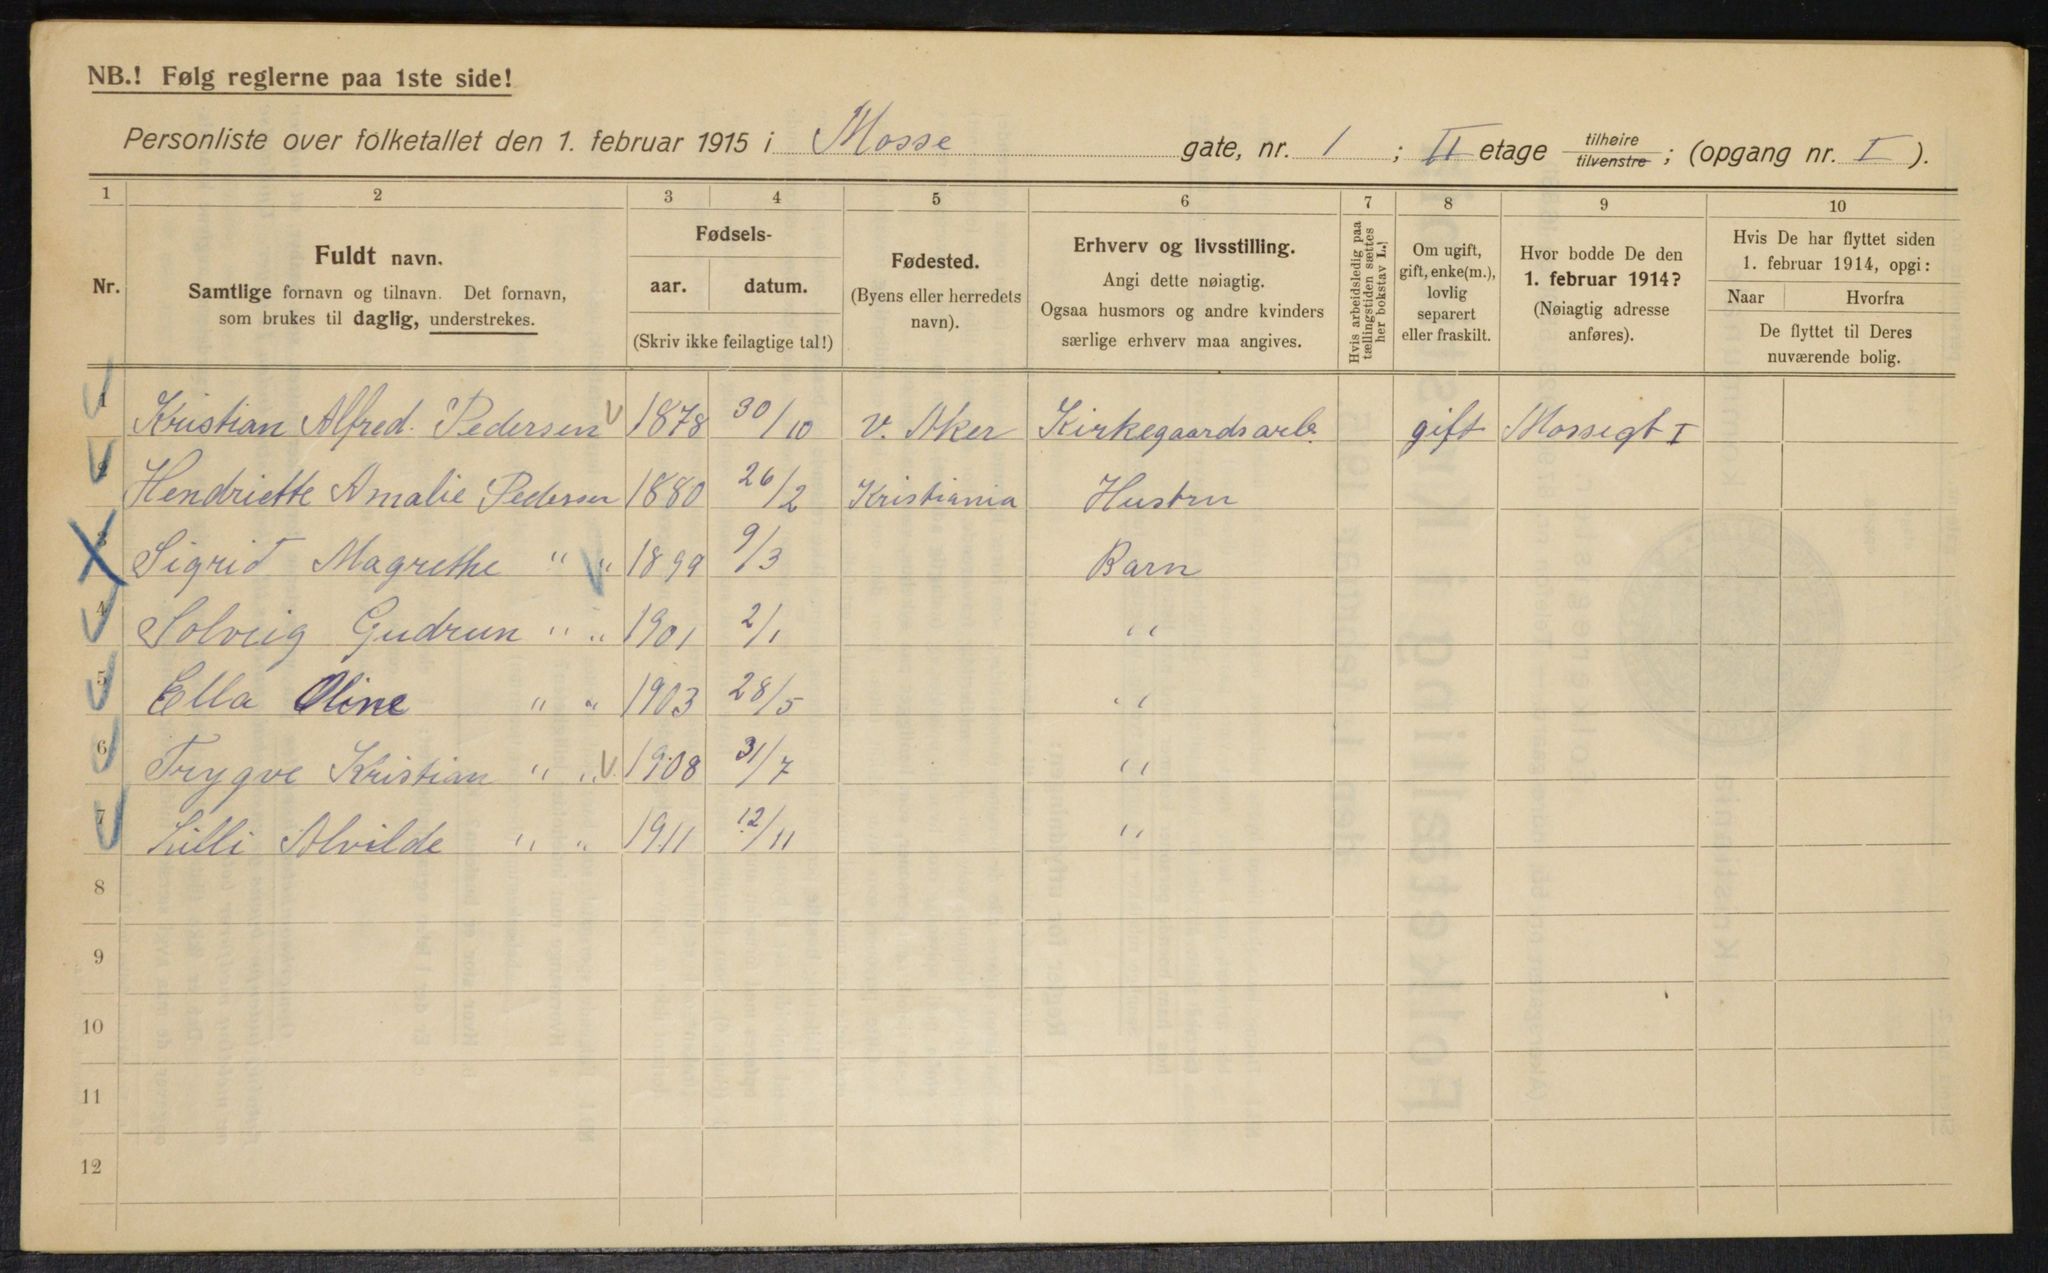 NB.! Følg reglerne paa 1ste side!
Personliste over folketallet den 1. februar 1915 i Mosse gate, nr. 1 ; II etage tilhøire tilvenstre ; (opgang nr. I ).
1 2 3 4 5 6 7 8 9 10
Nr.
Fuldt navn.
Samtlige fornavn og tilnavn. Det fornavn,
som brukes til daglig, understrekes.
Fødsels-
aar. datum.
(Skriv ikke feilagtige tal!)
Fødested.
(Byens eller herredets
navn).
Erhverv og livsstilling.
Angi dette nøiagtig.
Ogsaa husmors og andre kvinders
særlige erhverv maa angives.
Hvis arbeidsledig paa
tællingstiden sættes
her bokstav L.
Om ugift,
gift, enke(m.),
lovlig
separert
eller fraskilt.
Hvor bodde De den
1. februar 1914?
(Nøiagtig adresse
anføres).
Hvis De har flyttet siden
1. februar 1914, opgi:
Naar Hvorfra
De flyttet til Deres
nuværende bolig.
1 Kristian Alfred Pedersen 1878 30/10 V. Aker Kirkegaardsarb. gift Mossegt I
2 Hendriette Amalie Pedersen 1880 26/2 Kristiania Hustru
3 Sigrid Magrethe " " 1899 9/3 Barn
4 Solveig Gudrun " " 1901 2/1 "
5 Ella Oline " " 1903 28/5 "
6 Trygve Kristian " " 1908 31/7 "
7 Lilli Alvilde " " 1911 12/11 "
8
9
10
11
12